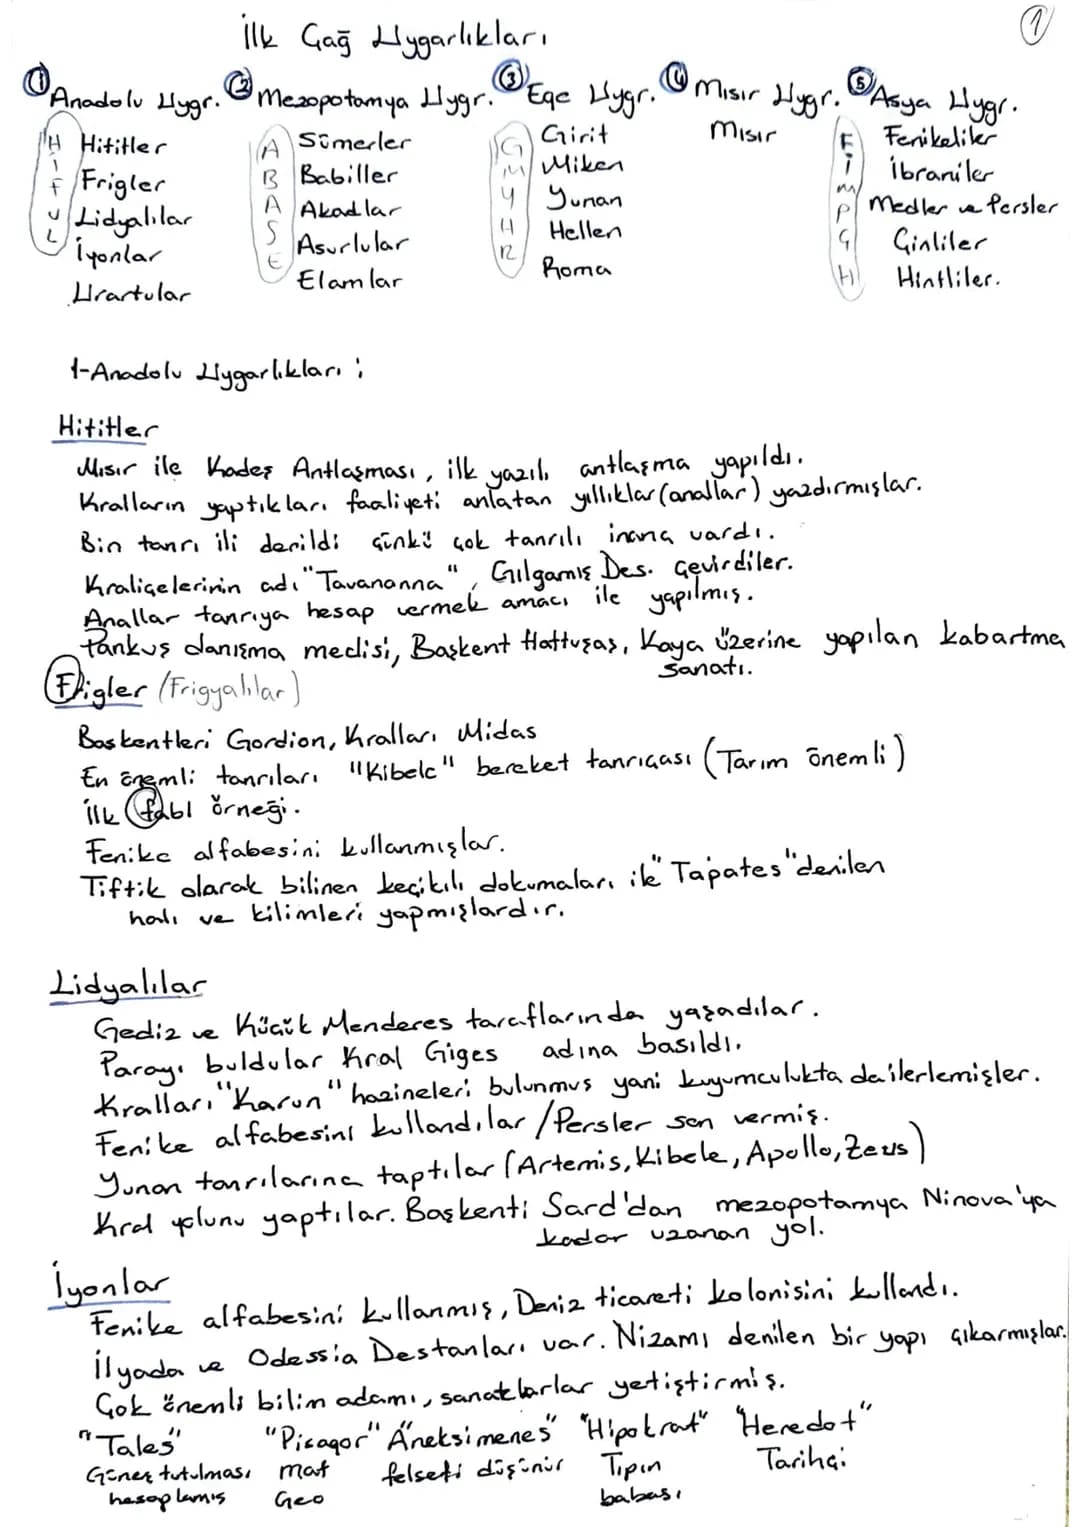 İlk Çağ Uygarlıkları
1
① Anadolu Uygr. ② Mezopotamya Uygr. ③ Ege Uygr. ④ Mısır Uygr. ⑤ Asya Uygr.
H Hititler A Sümerler G Girit Mısır F Fenikeliler
İ Frigler B Babiller M Miken İ İbraniler
F Lidyalılar A Akadlar Y Yunan M Medler ve Persler
U İyonlar S Asurlular H Hellen P Çinliler
L Urartular E Elamlar R Roma Ç Hintliler.
H
1-Anadolu Uygarlıkları :
Hititler
Mısır ile Kadeş Antlaşması, ilk yazılı antlaşma yapıldı.
Kralların yaptıkları faaliyeti anlatan yıllıklar (anallar) yazdırmışlar.
Bin tanrı ili denildi çünkü çok tanrılı inanç vardı.
Kraliçelerinin adı "Tavananna", Gılgamış Des. çevirdiler.
Anallar tanrıya hesap vermek amacı ile yapılmış.
Pankuş danışma meclisi, Başkent Hattuşaş, Kaya üzerine yapılan kabartma
sanatı.
Frigler (Frigyalılar)
Baskentleri Gordion, Kralları Midas
En önemli tanrıları "Kibele" bereket tanrıçası (Tarım önemli)
İlk fabl örneği.
Fenike alfabesini kullanmışlar.
Tiftik olarak bilinen keçikılı dokumaları ile "Tapates" denilen
halı ve kilimleri yapmışlardır.
Lidyalılar
Gediz ve Küçük Menderes taraflarında yaşadılar.
Parayı buldular Kral Giges adına basıldı.
Kralları "Karun" hazineleri bulunmus yani kuyumculukta da ilerlemişler.
Fenike alfabesini kullandılar / Persler son vermiş.
Yunan tanrılarına taptılar (Artemis, Kibele, Apollo, Zeus)
Kral yolunu yaptılar. Başkenti Sard'dan mezopotamya Ninova'ya
kadar uzanan yol.
İyonlar
Fenike alfabesini kullanmış, Deniz ticareti kolonisini kullandı.
İlyada ve Odessia Destanları var. Nizamı denilen bir yapı çıkarmışlar.
Çok önemli bilim adamı, sanatkarlar yetiştirmiş.
"Tales" "Pisagor" "Aneksimenes" "Hipokrat" "Heredot"
Güneş tutulması mat felsefi düşünür Tıpın Tarihçi
hesaplamıs Geo babası